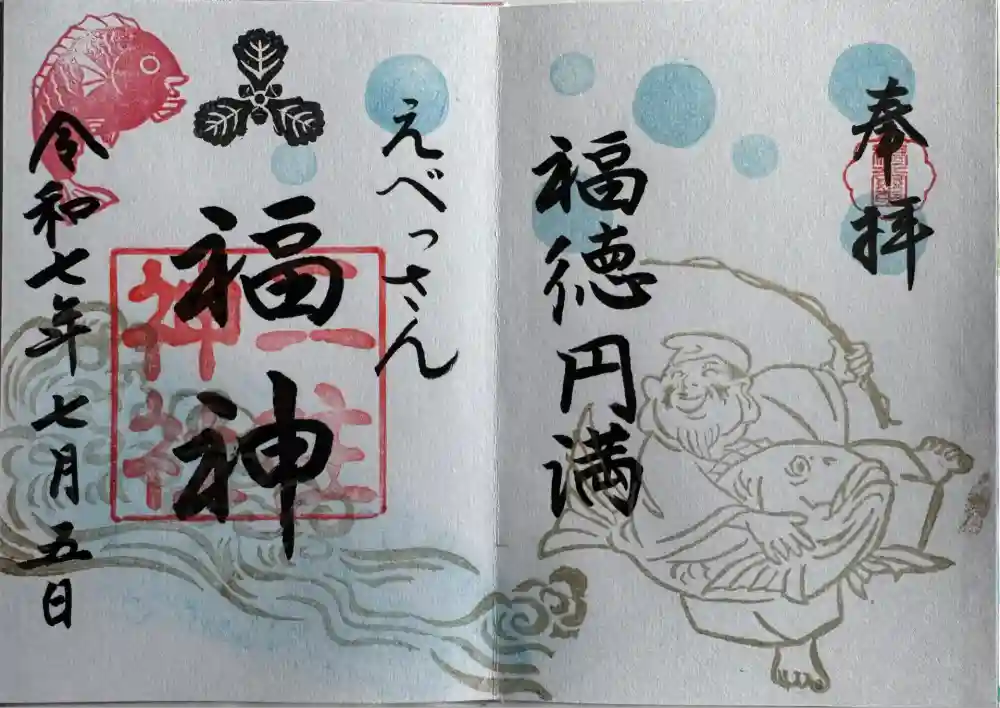 奉拝
福徳円満
えべっさん
福神
二柱
神社
令和七年七月五日